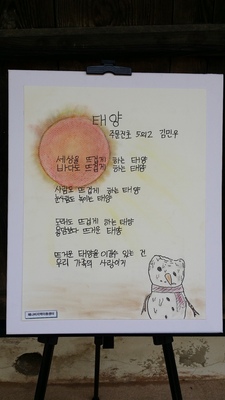 태양
주문진초 5의2 김민우
세상을 뜨겁게 하는 태양
바다도 뜨겁게 하는 태양
사람도 뜨겁게 하는 태양
눈사람도 녹이는 태양
모래도 뜨겁게 하는 태양
용암보다 뜨거운 태양
뜨거운 태양을 이길수 있는 건
우리 가족의 사랑이지